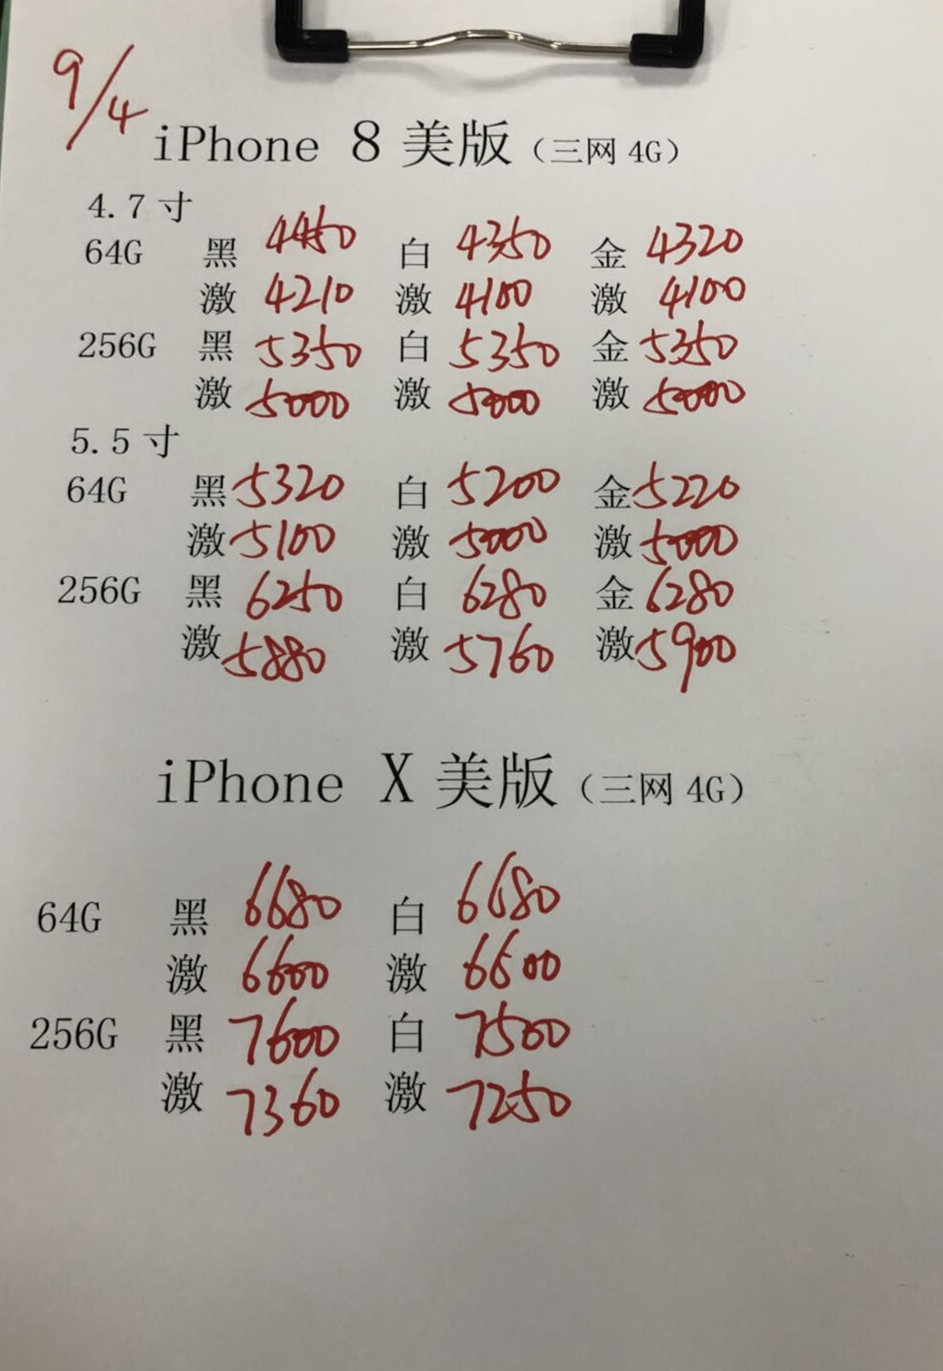 9/4
iPhone 8 美版（三网 4G）
4.7 寸
64G 黑 4450 白 4350 金 4320
激 4210 激 4100 激 4100
256G 黑 5350 白 5350 金 5350
激 5000 激 5000 激 5000
5.5 寸
64G 黑 5320 白 5200 金 5220
激 5100 激 5000 激 5000
256G 黑 6250 白 6280 金 6280
激 5880 激 5760 激 5900
iPhone X 美版（三网 4G）
64G 黑 6680 白 6680
激 6600 激 6600
256G 黑 7600 白 7500
激 7360 激 7250